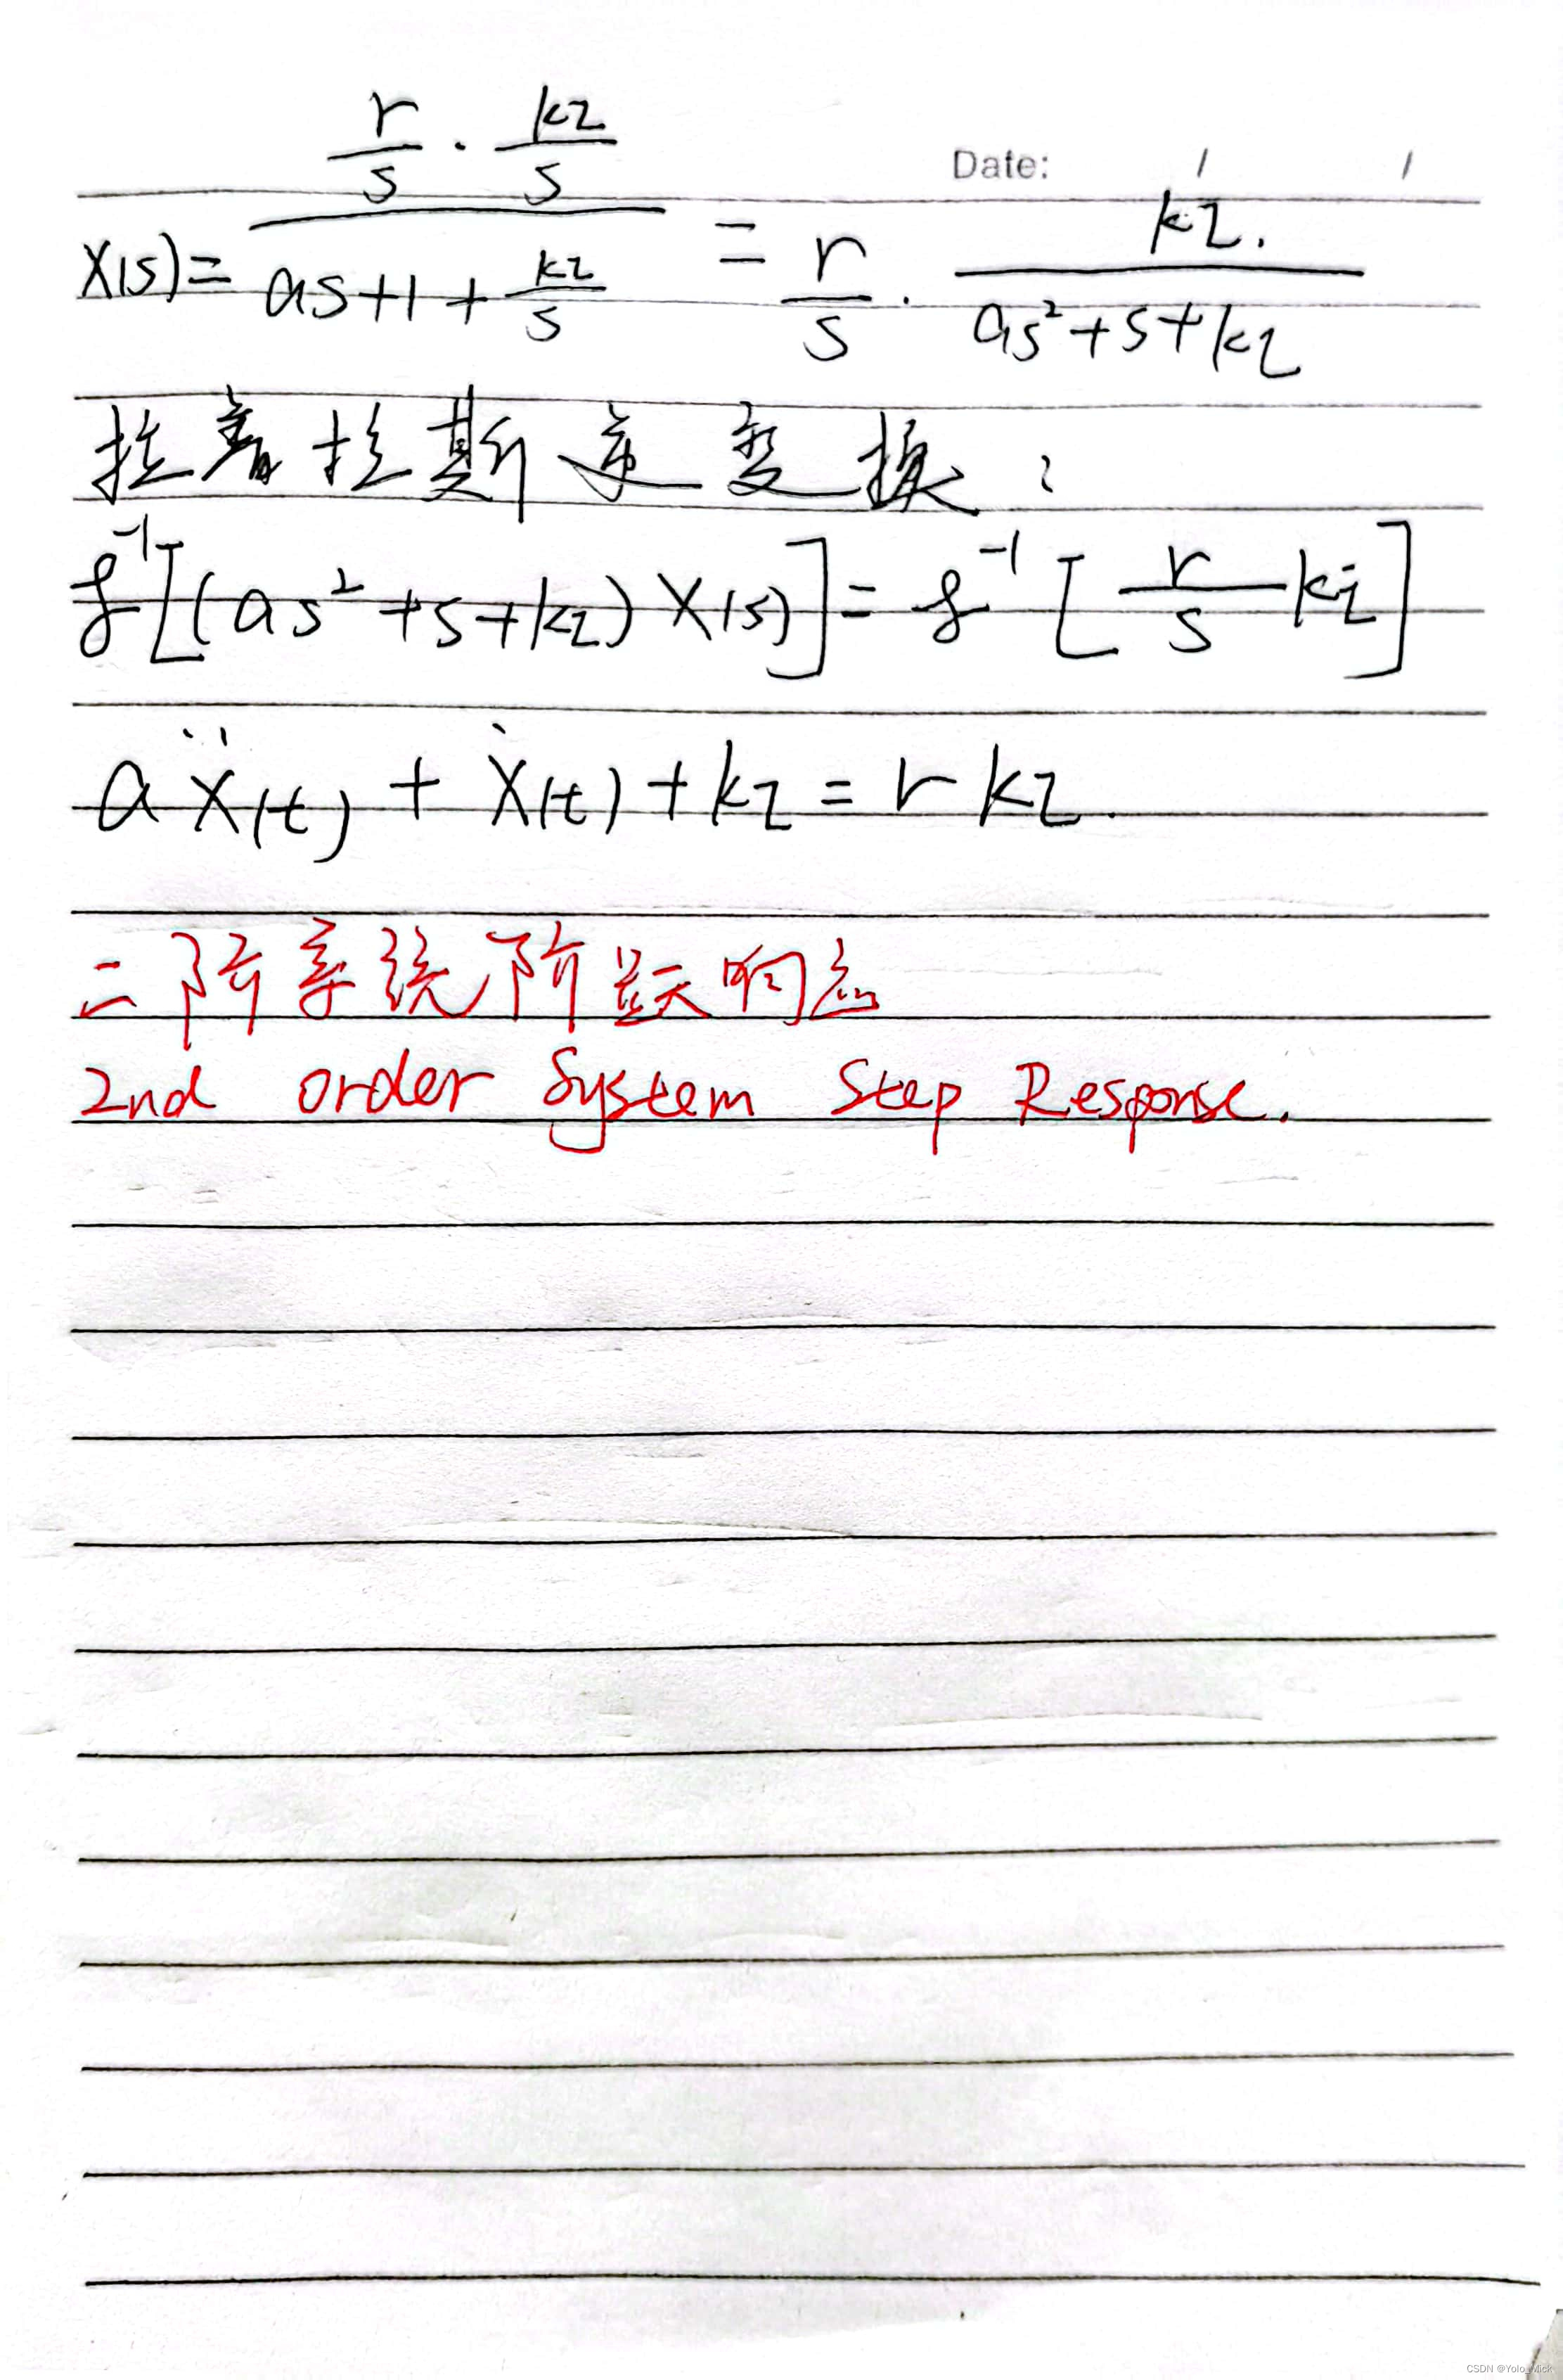 Date: / /
X(s) = (r/s · k₂/s) / (as+1 + k₂/s) = r/s · k₂. / (as²+s+k₂)
拉普拉斯逆变换:
ℒ⁻¹[(as²+s+k₂)X(s)] = ℒ⁻¹[r/s kᵢ]
aẍ(t) + ẋ(t) + k₂ = r k₂.
二阶系统阶跃响应
2nd order System Step Response.
CSDN @Yolo_Mick